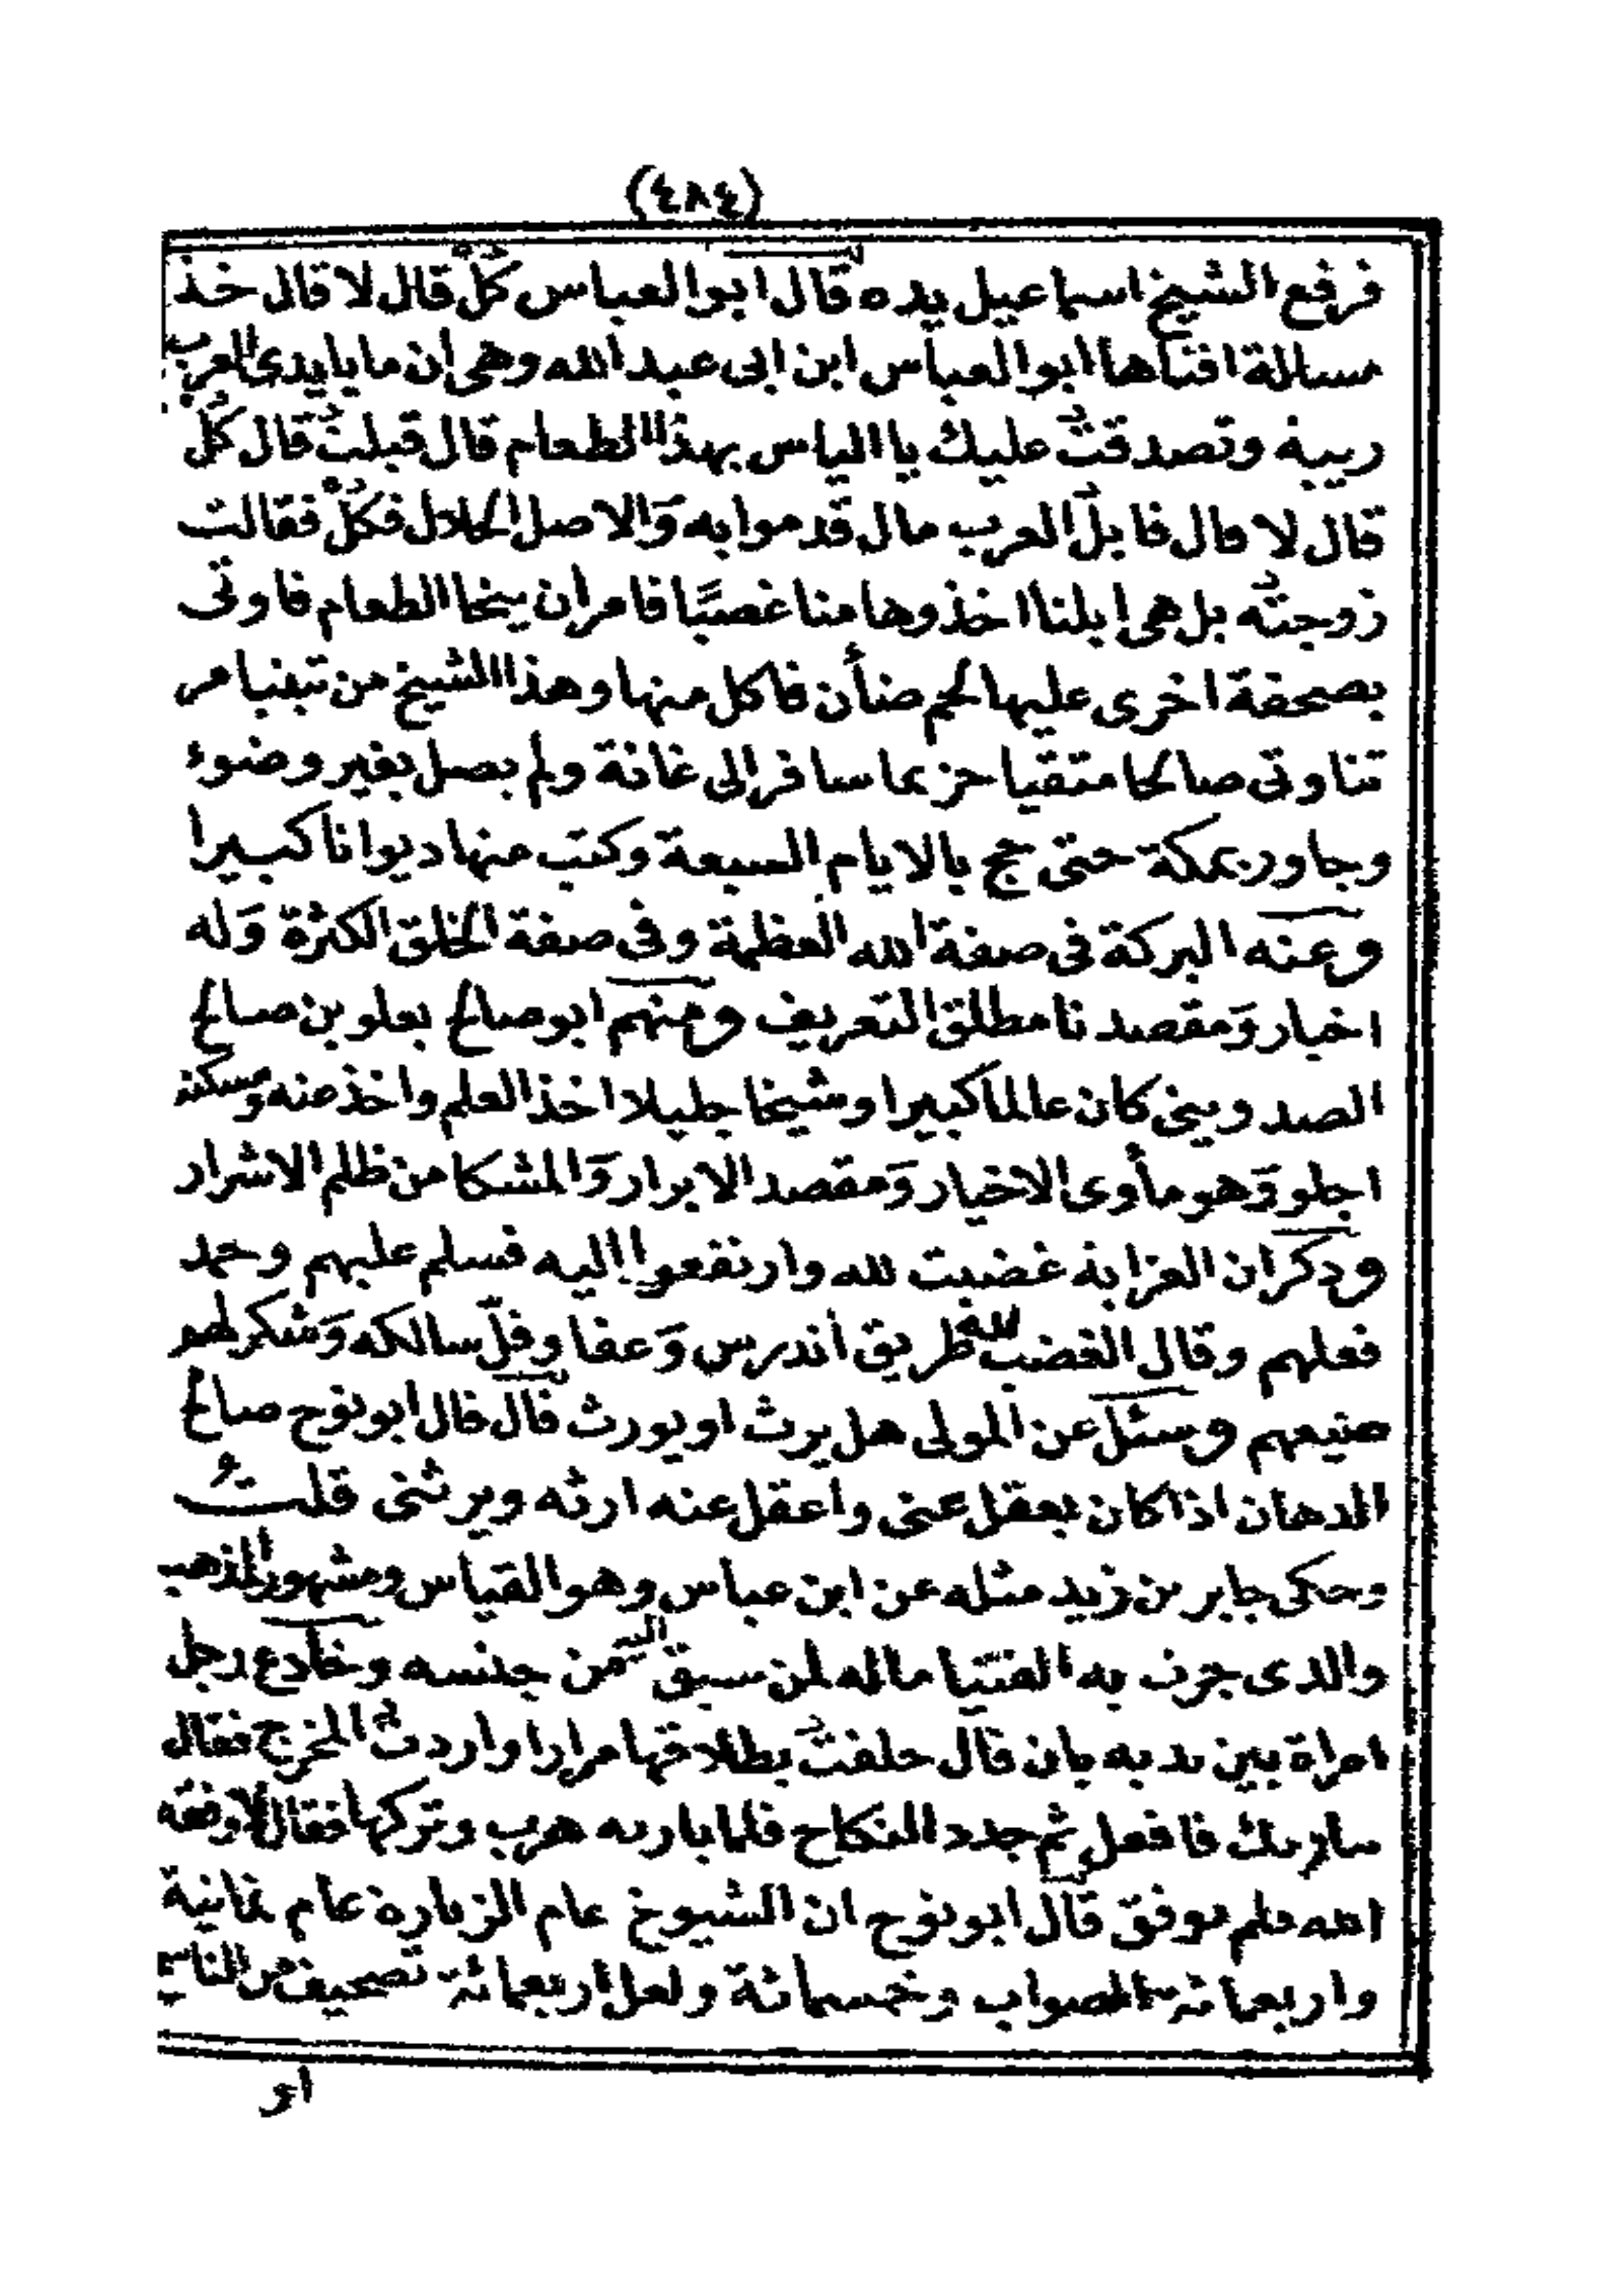 (٤٨٤)
فرفع الشيخ اسماعيل يده قال ابو العباس كُلْ قال لا قال خذ
مسالة افتاها ابو العباس ابن ابى عبد الله وهى ان ما بايدى العرب
ريبة وتصدقتُ عليك يا الياس بهذا الطعام قال قبلتُ قال كُلْ
قال لا قال فابلُ العرب مال قدموا به وَالاصل الحلال فكُلْ فقالت
زوجتُه بل هى ابلنا اخذوها منا غصبًا فامر ان ينحا الطعام فاوتى
بصحفة اخرى عليها لحم ضأن فاكل منها وهذا الشيخ من تبغبا مر
تناوتى صالحا متقيا حزيما سافر الى غانة ولم يصل بغير وضوء
وجاور بمكة حتى حج بالايام السبعة وكتب منها ديوانا كبيرا
وعنه البركة فى صفة الله العظمة وفى صفة الخلق الكثرة وَله
اخبار وَمقصدنا مطلق التعريف ومنهم ابو صالح يعلو بن صالح
الصدوينى كان عالما كبيرا وشيخا جليلا اخذ العلم واخذ منه ومسكنه
اجلو وَهو مأوى الاخيار وَمقصد الابرار وَالمشكا من ظلم الاشرار
وذكر ان العزابة غضبت لله وارتفعوا اليه فسلم عليهم وحمد
فعلهم وقال الغضب لله طريق أندرس وَعفا وقلّ سالكه وَشكر لهم
صنيعهم وسئل عن المولى هل يرث او يورث قال قال ابو نوح صالح
الدهان اذا كان يعقل عنى واعقل عنه ارثه ويرثنى قلتُ
وحكى جابر بن زيد مثله عن ابن عباس وهو القياس ومشهور المذهب
والذى جرت به الفتيا ماله لمن سبق اليه من جنسه وخادع رجل
امراة بين يديه بان قال حلفتُ بطلاقها مرارا واردتُ المخرج فقال
فافعل ثم جدد النكاح فلما بارته هرب وتركها فقال لا وفقه
الله فلم يوفق قال ابو نوح ان الشيوخ عام الزيارة عام ثمانية
واربعمائة الصواب وخمسمائة ولعل اربعمائة تصحيف من الناس
او